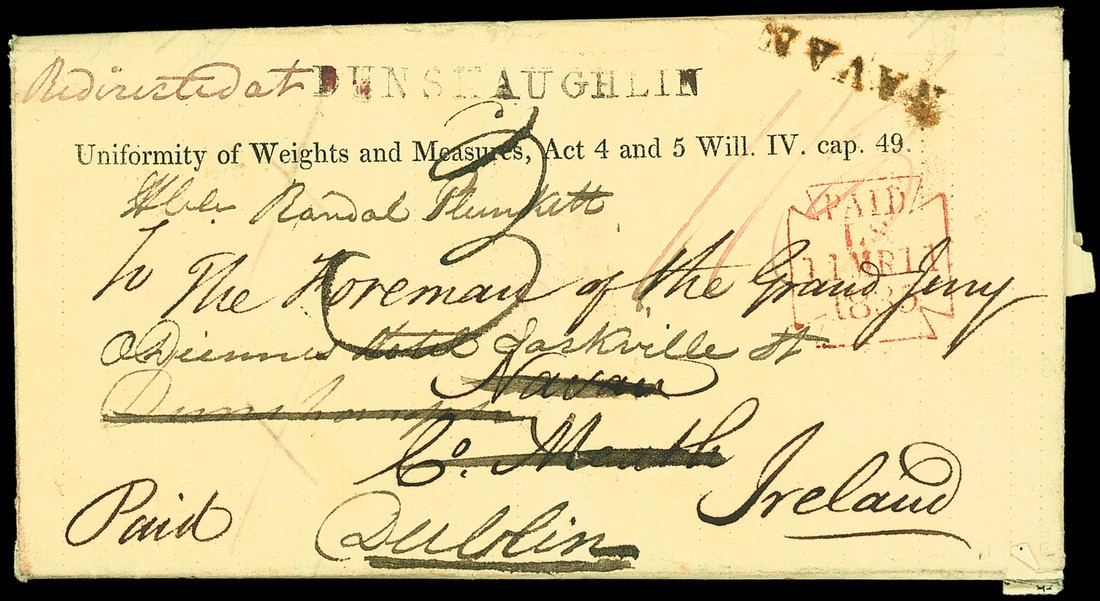 NAVAN
Redirected at DUNSHAUGHLIN
Uniformity of Weights and Measures, Act 4 and 5 Will. IV. cap. 49.
Randal Plunkett
3
To The Foreman of the Grand Jury
PAID
11 MR 11
1835
Hotel Sackville St
Navan
Dunshaughlin
Co. Meath
Ireland
Paid
Dublin